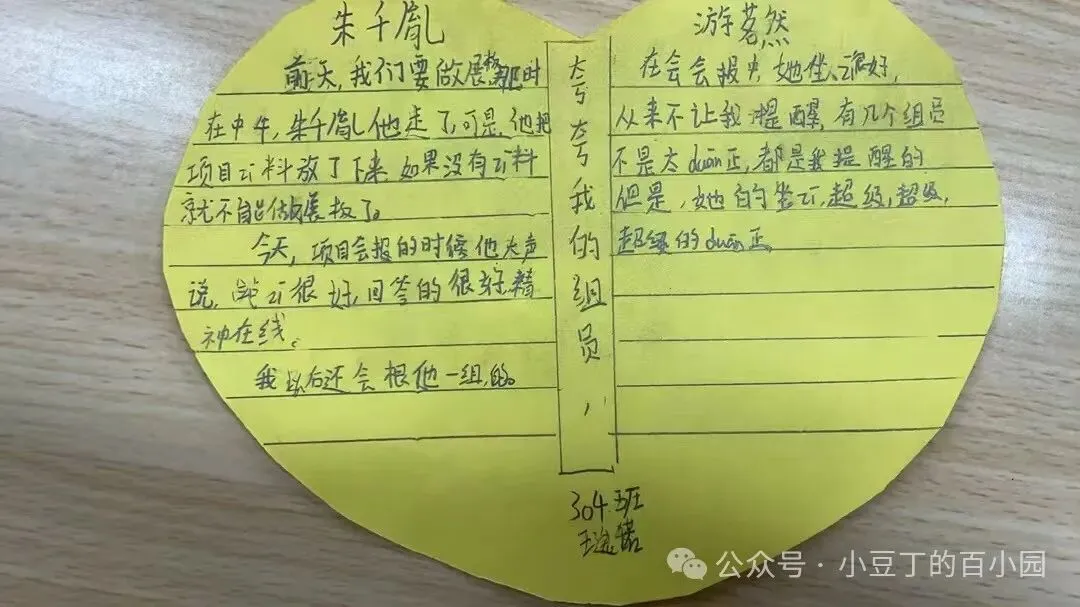 朱千胤
前天,我们要做展板,那时
在中午,朱千胤他走了,可是,他把
项目云料放了下来,如果没有云料
就不能做展板了。
今天,项目会报的时候他大声
说,云很好,回答的很好,精
神在线。
我以后还会根他一组的。
夸夸我的组员
游茗然
在会会报中,她坐云很好,
从来不让我提醒,有几个组员
不是太duān正,都是我提醒的
但是,她的坐云,超级,超级,
超级的duān正。
304班
公众号·小豆丁的百小园